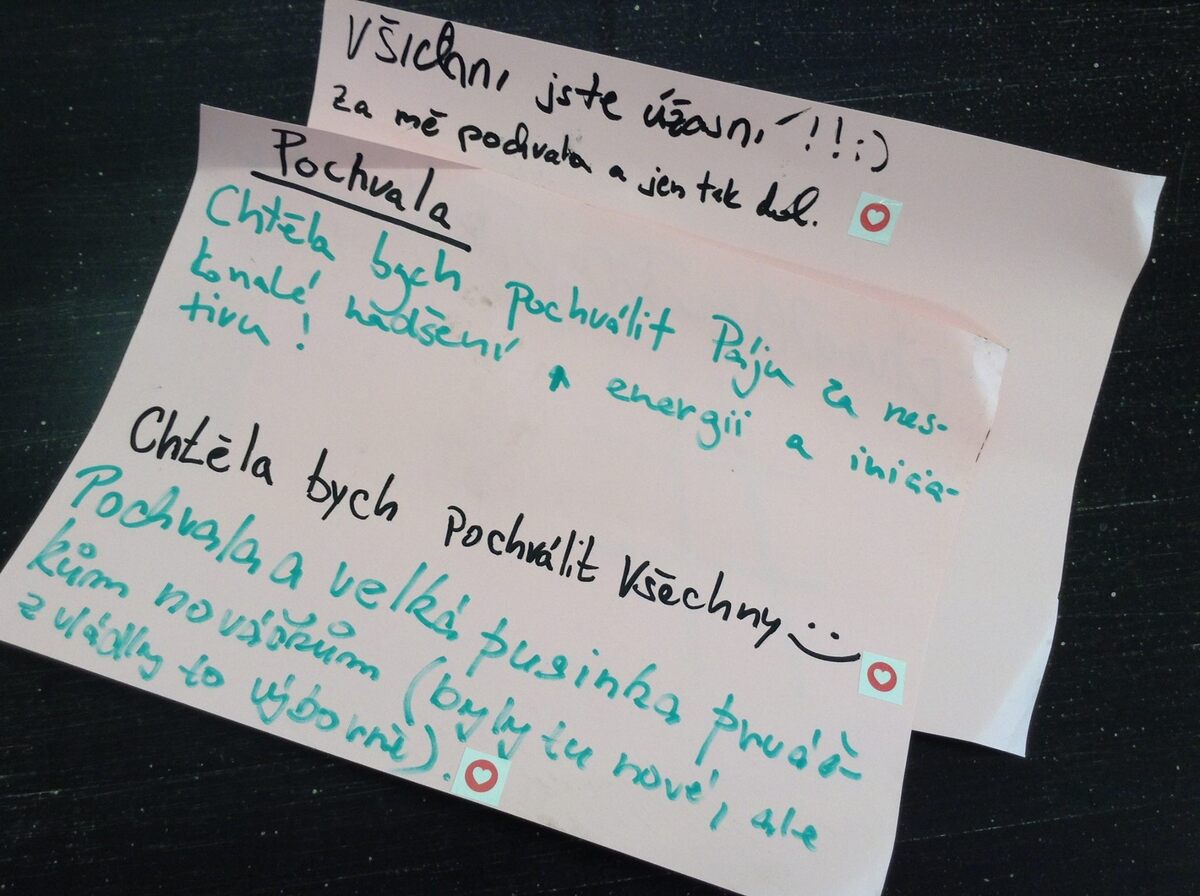 Všichni jste úžasní!!! :)
za mě pochvala a jen tak dál.
Pochvala
Chtěla bych pochválit Páju za nes-
konalé nadšení a energii a inicia-
tivu!
Chtěla bych pochválit Všechny
Pochvala a velká pusinka prváč-
kům nováčkům (byly tu nové, ale
zvládly to výborně).